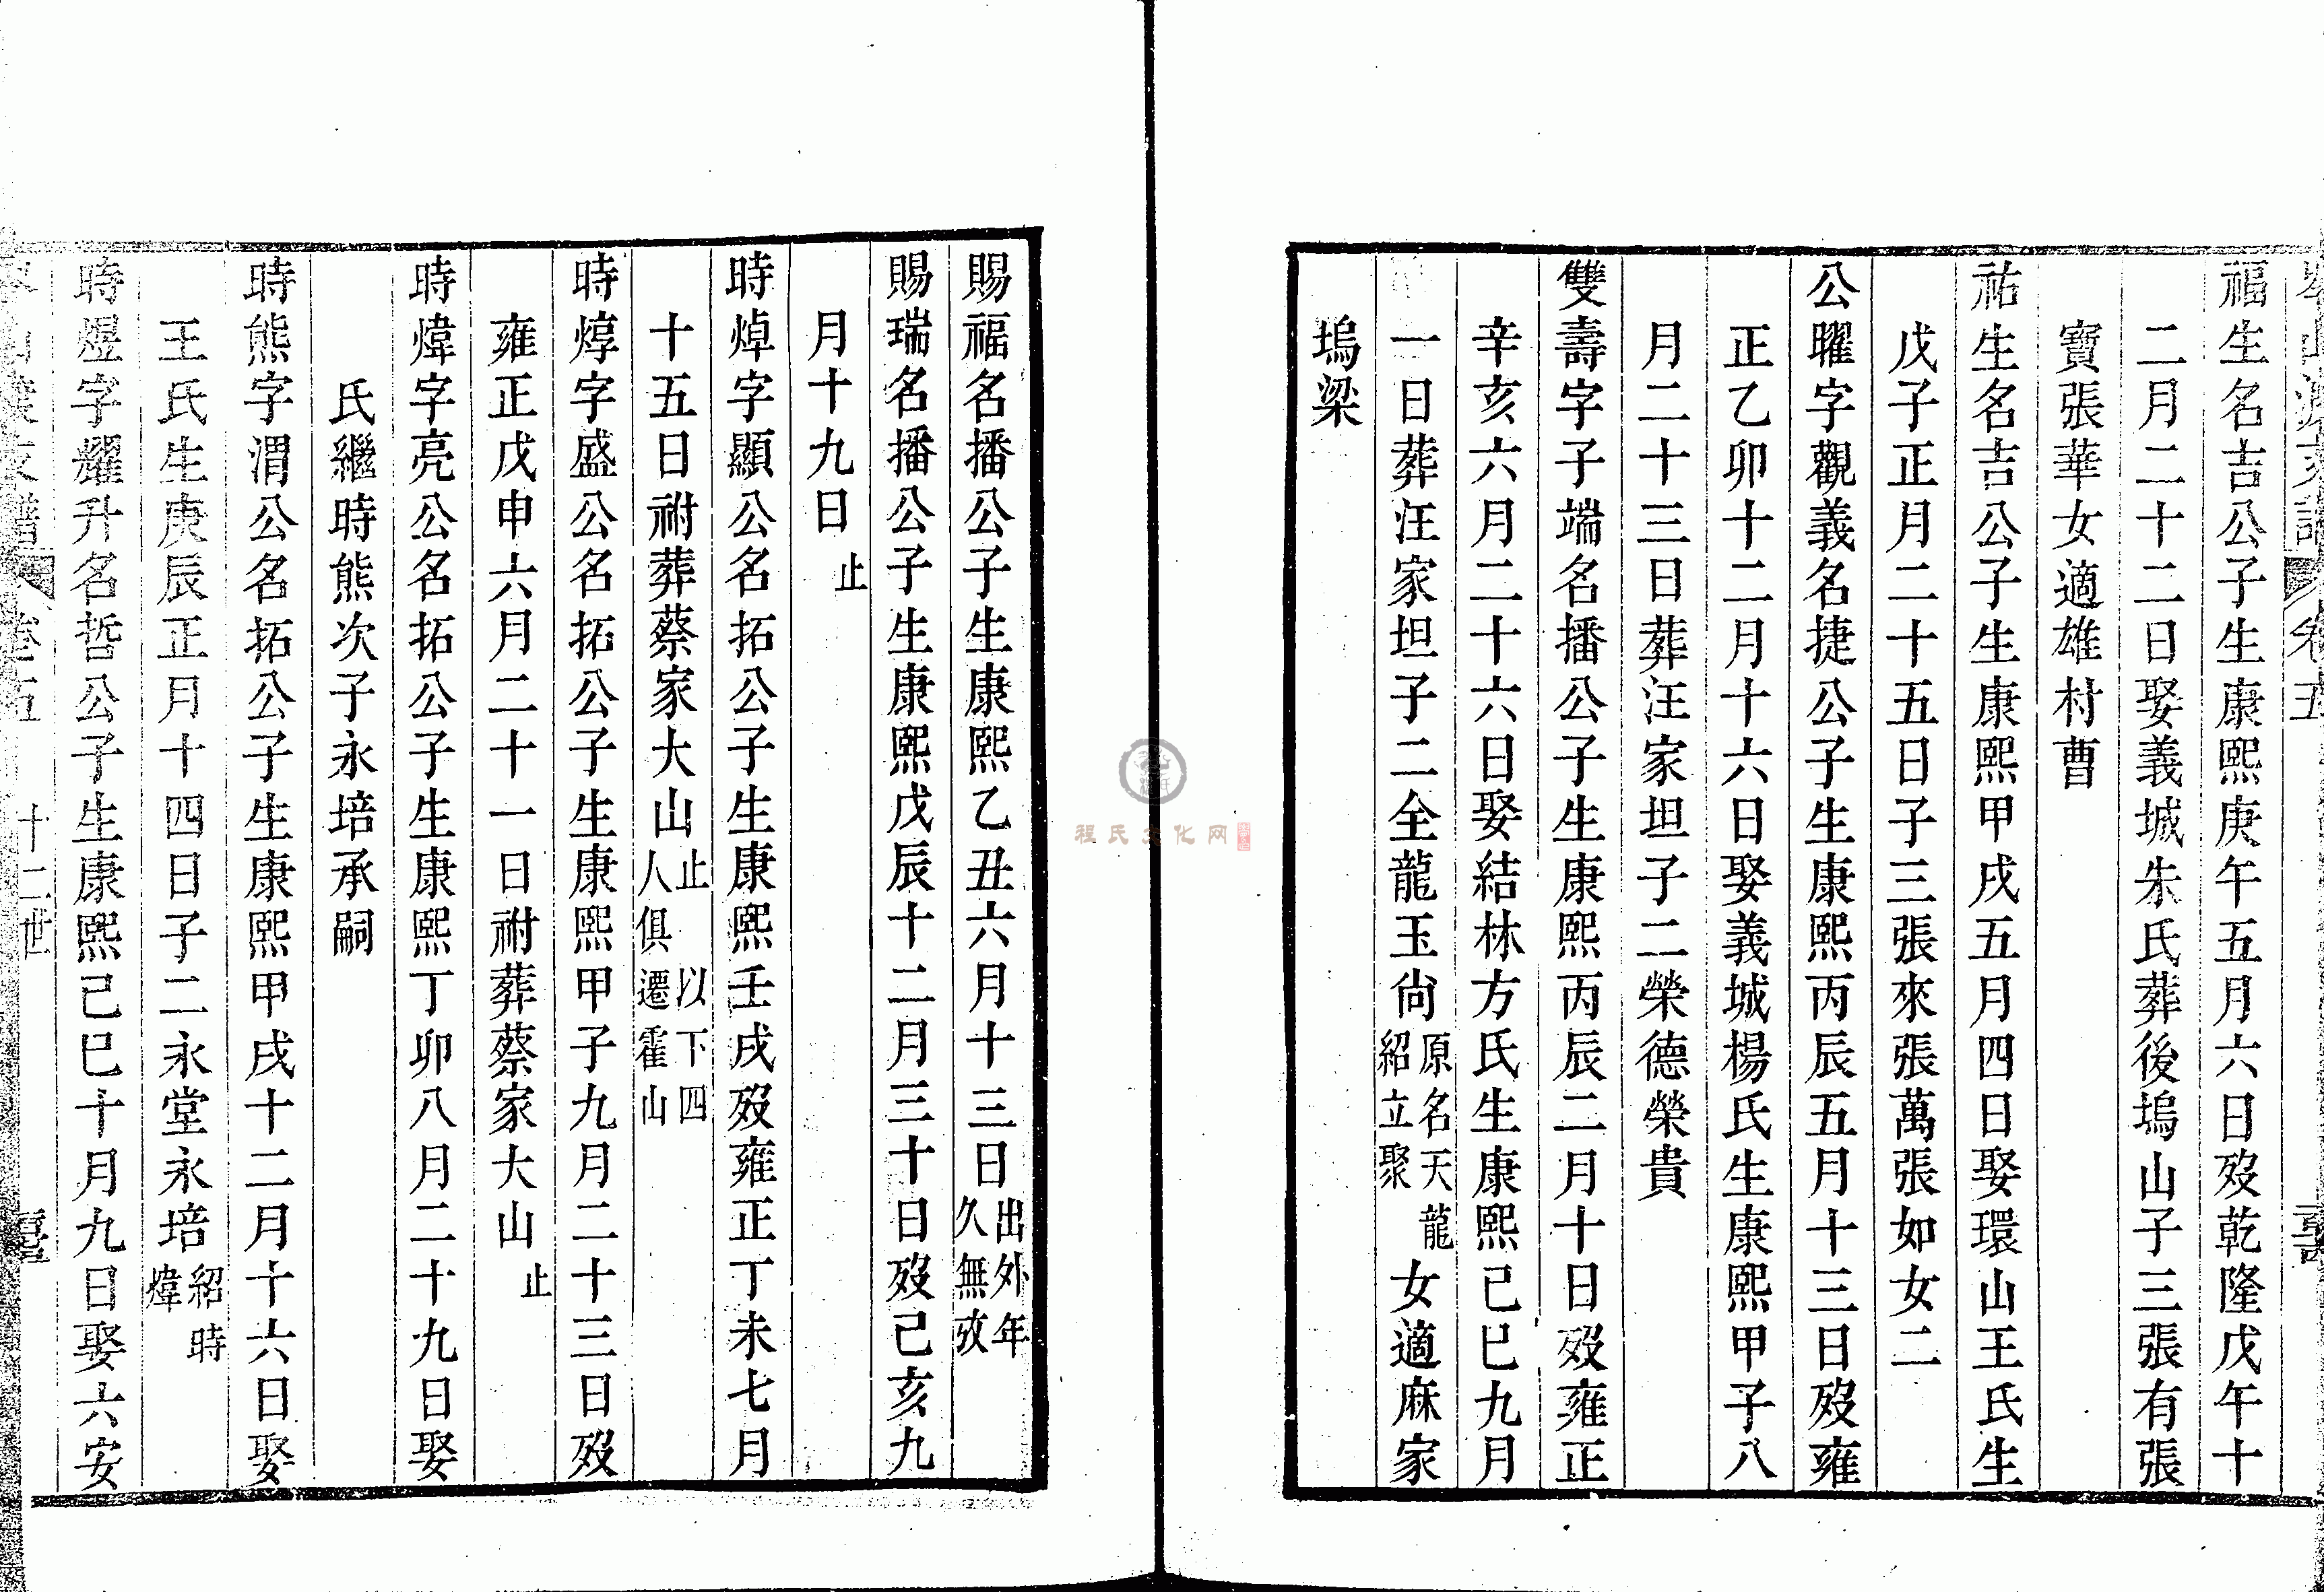 福生名吉公子生康熙庚午五月六日歿乾隆戊午十
二月二十二日娶義城朱氏葬後塢山子三張有張
寶張華女適雄村曹
祐生名吉公子生康熙甲戌五月四日娶環山王氏生
戊子正月二十五日子三張來張萬張如女二
公曜字觀義名捷公子生康熙丙辰五月十三日歿雍
正乙卯十二月十六日娶義城楊氏生康熙甲子八
月二十三日葬汪家坦子二榮德榮貴
雙壽字子端名播公子生康熙丙辰二月十日歿雍正
辛亥六月二十六日娶結林方氏生康熙己巳九月
一日葬汪家坦子二全龍玉尙原名天龍紹立聚女適麻家
塢梁
賜福名播公子生康熙乙丑六月十三日出外年久無攷
賜瑞名播公子生康熙戊辰十二月三十日歿己亥九
月十九日止
時焯字顯公名拓公子生康熙壬戌歿雍正丁未七月
十五日祔葬蔡家大山止以下四人俱遷霍山
時焞字盛公名拓公子生康熙甲子九月二十三日歿
雍正戊申六月二十一日祔葬蔡家大山止
時煒字亮公名拓公子生康熙丁卯八月二十九日娶
氏繼時熊次子永培承嗣
時熊字渭公名拓公子生康熙甲戌十二月十六日娶
王氏生庚辰正月十四日子二永堂永培紹時煒
時煜字耀升名哲公子生康熙己巳十月九日娶六安
支譜 卷五 十二世
程氏文化网